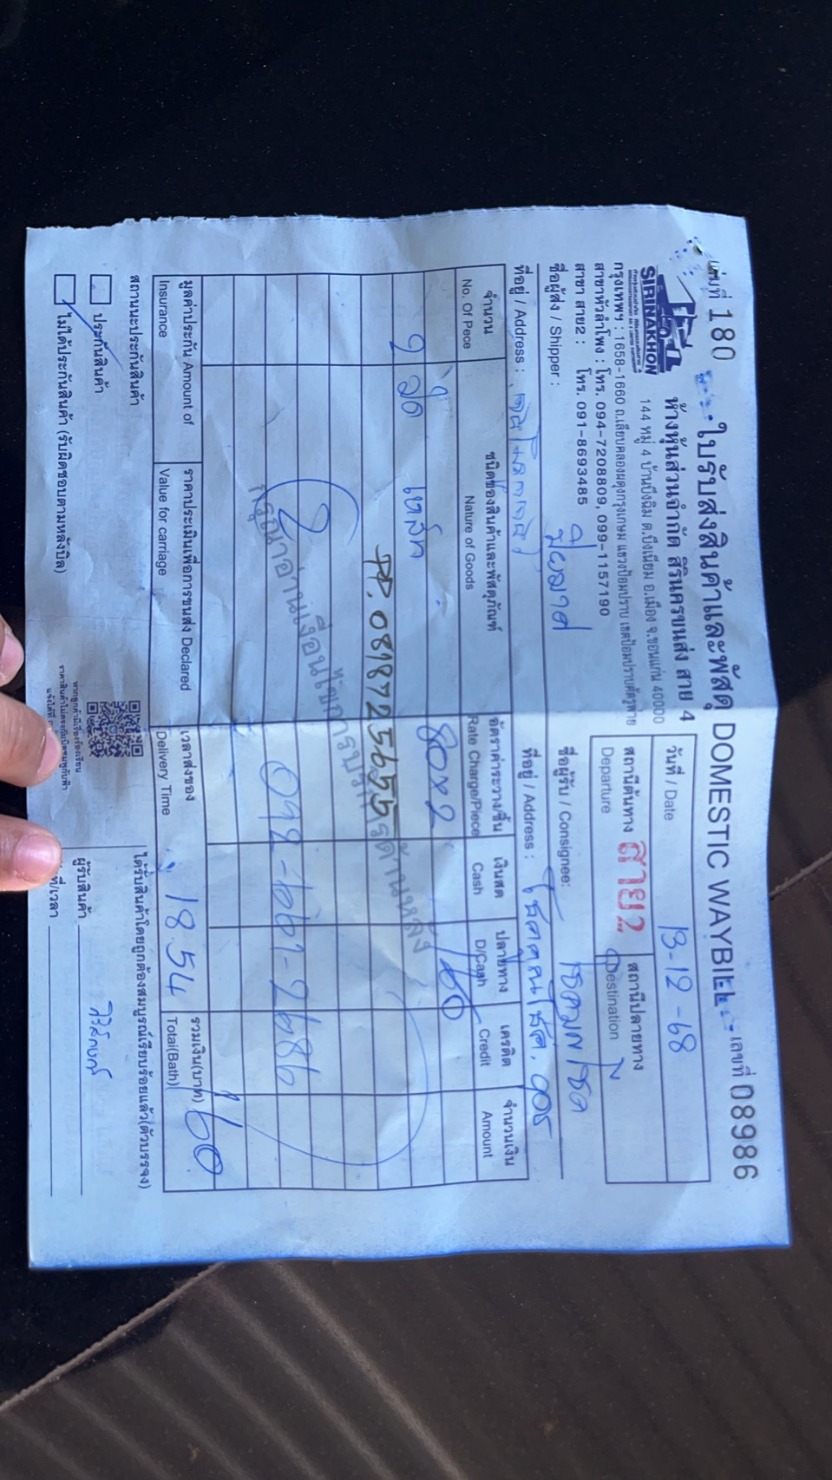 เล่มที่ 180
ใบรับส่งสินค้าและพัสดุ DOMESTIC WAYBILL
เลขที่ 08986
SIRINAKHON
ห้างหุ้นส่วนจำกัด สิรินครขนส่ง สาย 4
144 หมู่ 4 บ้านบึงฉิม ต.บึงเนียม อ.เมือง จ.ขอนแก่น 40000
กรุงเทพฯ : 1658-1660 ถ.เลียบคลองผดุงกรุงเกษม แขวงป้อมปราบ เขตป้อมปราบศัตรูพ่าย
สาขาหัวลำโพง : โทร. 094-7208809, 099-1157190
สาขา สาย2 : โทร. 091-8693485
วันที่ / Date 13-12-68
สถานีต้นทาง Departure สาย2
สถานีปลายทาง Destination
ชื่อผู้ส่ง / Shipper : ปิยมาศ
ชื่อผู้รับ / Consignee:
ที่อยู่ / Address :
ที่อยู่ / Address :
จำนวน No. Of Pece
ชนิดของสินค้าและพัสดุภัณฑ์ Nature of Goods
อัตราค่าระวาง/ชิ้น Rate Charge/Piece
เงินสด Cash
ปลายทาง D/Cash
เครดิต Credit
จำนวนเงิน Amount
2 เหล็ก 80x2 160
โทร. 0818725655
2
092-661-2686
กรุณาอ่านเงื่อนไขการบริการด้านหลัง
มูลค่าประกัน Amount of Insurance
ราคาประเมินเพื่อการขนส่ง Declared Value for carriage
เวลาส่งของ Delivery Time 18 54
รวมเงิน(บาท) Total(Bath) 160
สถานนะประกันสินค้า
ประกันสินค้า
ไม่ได้ประกันสินค้า (รับผิดชอบตามหลังบิล)
ได้รับสินค้าโดยถูกต้องสมบูรณ์เรียบร้อยแล้ว(ตัวบรรจง)
ผู้รับสินค้า
ที่/เวลา